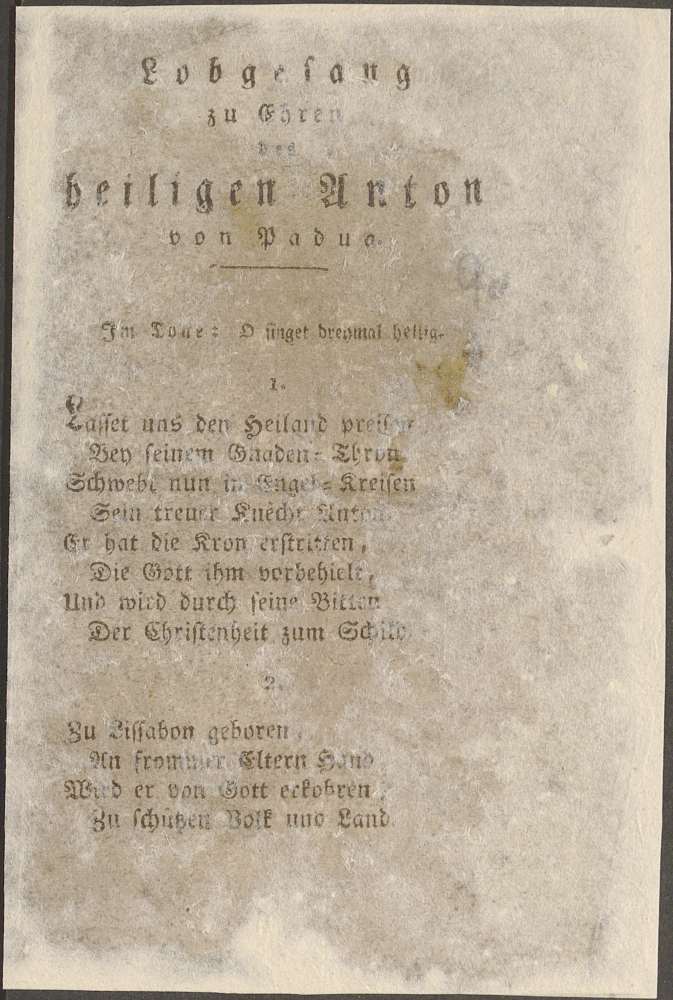 Lobgesang
zu Ehren
des
heiligen Anton
von Padua.
Im Tone: O singet dreymal heilig.
1.
Lasset uns den Heiland preisen
Bey seinem Gnaden-Thron.
Schwebt nun in Engel-Kreisen
Sein treuer Knecht Anton.
Er hat die Kron erstritten,
Die Gott ihm vorbehielt,
Und wird durch seine Bitten
Der Christenheit zum Schild.
2.
Zu Lissabon geboren,
An frommer Eltern Hand
Wird er von Gott erkohren,
Zu schützen Volk und Land.